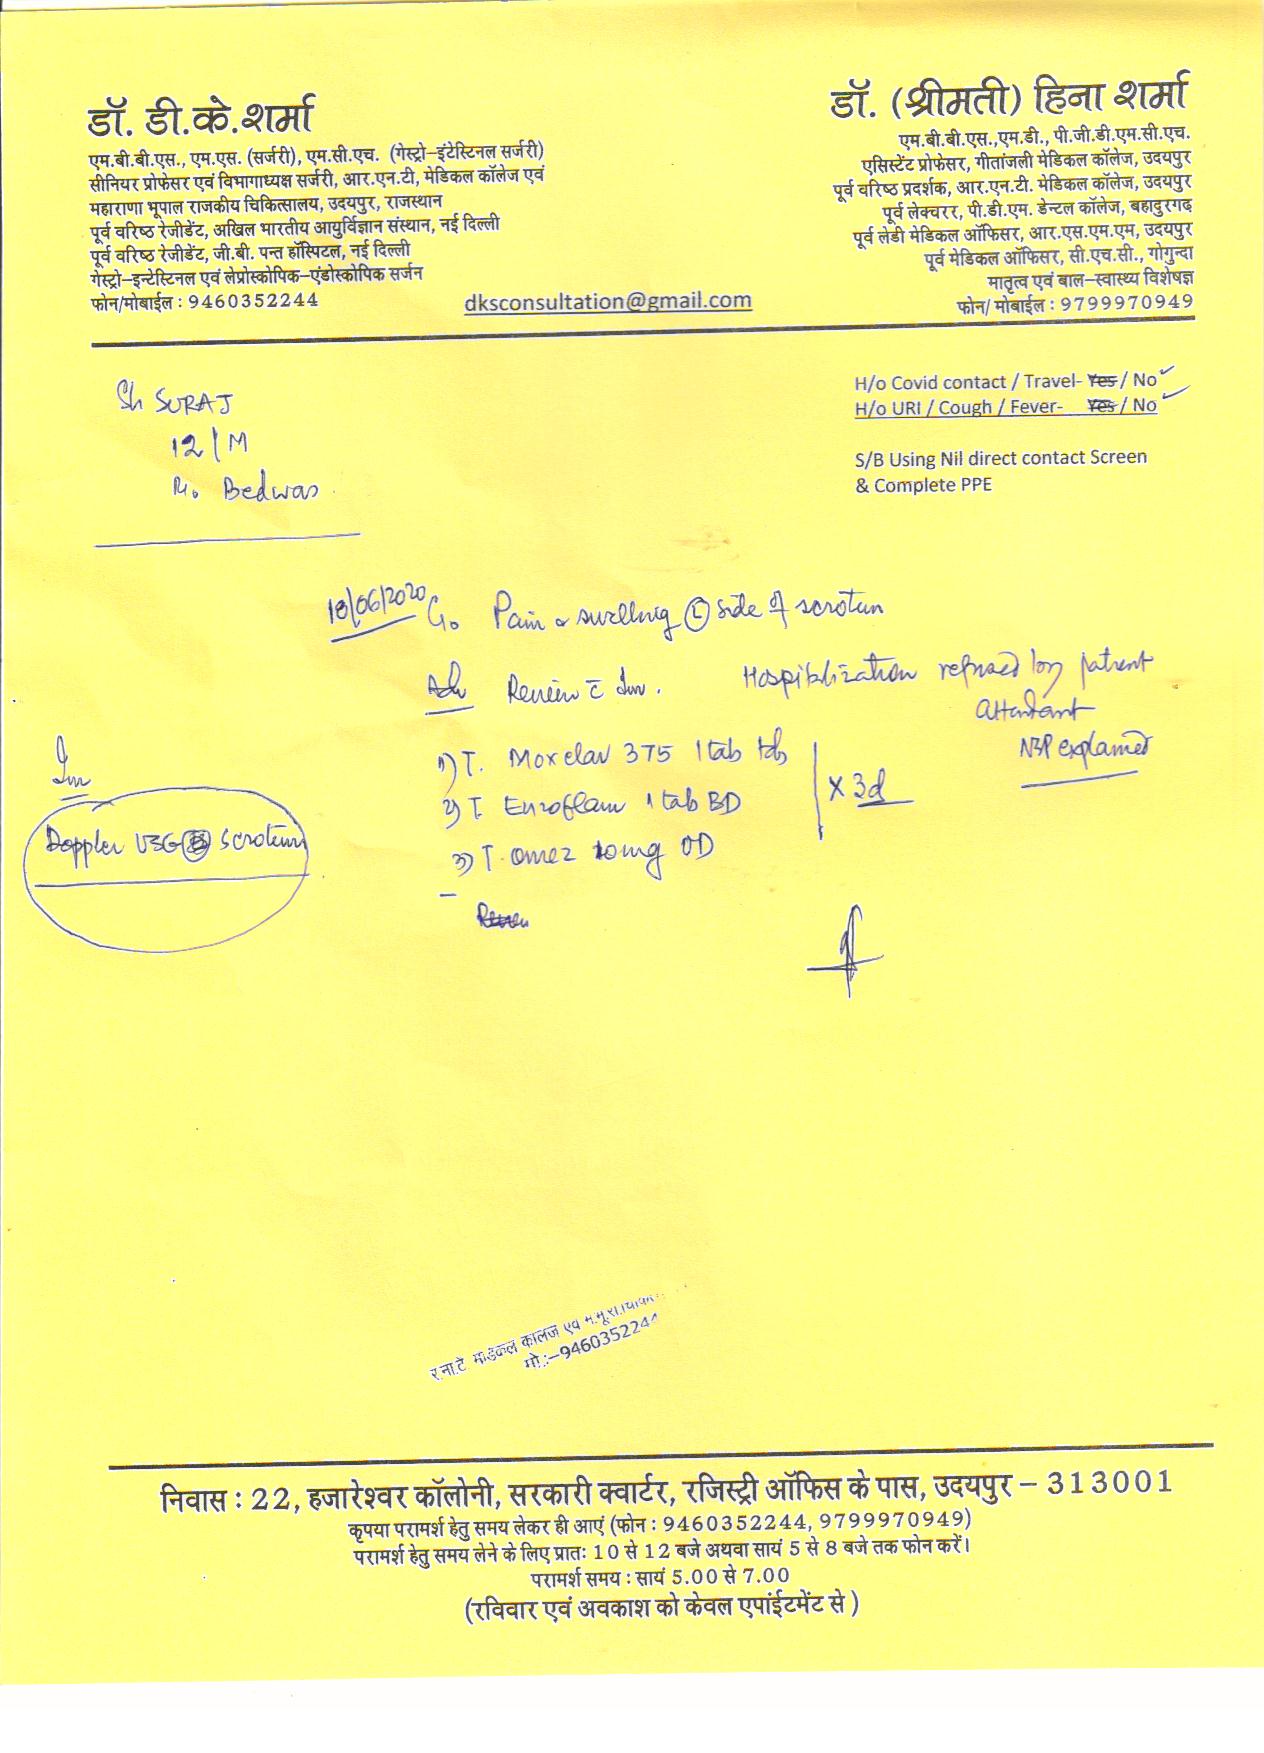 डॉ. डी.के.शर्मा
एम.बी.बी.एस., एम.एस. (सर्जरी), एम.सी.एच. (गेस्ट्रो-इंटेस्टिनल सर्जरी)
सीनियर प्रोफेसर एवं विभागाध्यक्ष सर्जरी, आर.एन.टी, मेडिकल कॉलेज एवं
महाराणा भूपाल राजकीय चिकित्सालय, उदयपुर, राजस्थान
पूर्व वरिष्ठ रेजीडेंट, अखिल भारतीय आयुर्विज्ञान संस्थान, नई दिल्ली
पूर्व वरिष्ठ रेजीडेंट, जी.बी. पन्त हॉस्पिटल, नई दिल्ली
गेस्ट्रो-इन्टेस्टिनल एवं लेप्रोस्कोपिक-एंडोस्कोपिक सर्जन
फोन/मोबाईल : 9460352244
dksconsultation@gmail.com
डॉ. (श्रीमती) हिना शर्मा
एम.बी.बी.एस.,एम.डी., पी.जी.डी.एम.सी.एच.
एसिस्टेंट प्रोफेसर, गीतांजली मेडिकल कॉलेज, उदयपुर
पूर्व वरिष्ठ प्रदर्शक, आर.एन.टी. मेडिकल कॉलेज, उदयपुर
पूर्व लेक्चरर, पी.डी.एम. डेन्टल कॉलेज, बहादुरगढ़
पूर्व लेडी मेडिकल ऑफिसर, आर.एस.एम.एम, उदयपुर
पूर्व मेडिकल ऑफिसर, सी.एच.सी., गोगुन्दा
मातृत्व एवं बाल-स्वास्थ्य विशेषज्ञ
फोन/ मोबाईल : 9799970949
H/o Covid contact / Travel- Yes / No
H/o URI / Cough / Fever- Yes / No
S/B Using Nil direct contact Screen
& Complete PPE
Sh SURAJ
12/M
R/o Bedwas
18/06/2020 C/o Pain & swelling L side of scrotum
Adv Review c Inv. Hospitalization refused by patient
attendant
N3P explained
1) T. Moxclav 375 1 tab tds
2) T. Enzoflam 1 tab BD
3) T. Omez 10mg OD
x 3d
Inv
Doppler USG scrotum
र.ना.टे मेडिकल कॉलेज एवं
मो.:-9460352244
निवास : 22, हजारेश्वर कॉलोनी, सरकारी क्वार्टर, रजिस्ट्री ऑफिस के पास, उदयपुर - 313001
कृपया परामर्श हेतु समय लेकर ही आएं (फोन : 9460352244, 9799970949)
परामर्श हेतु समय लेने के लिए प्रातः 10 से 12 बजे अथवा सायं 5 से 8 बजे तक फोन करें।
परामर्श समय : सायं 5.00 से 7.00
(रविवार एवं अवकाश को केवल एपांईटमेंट से)